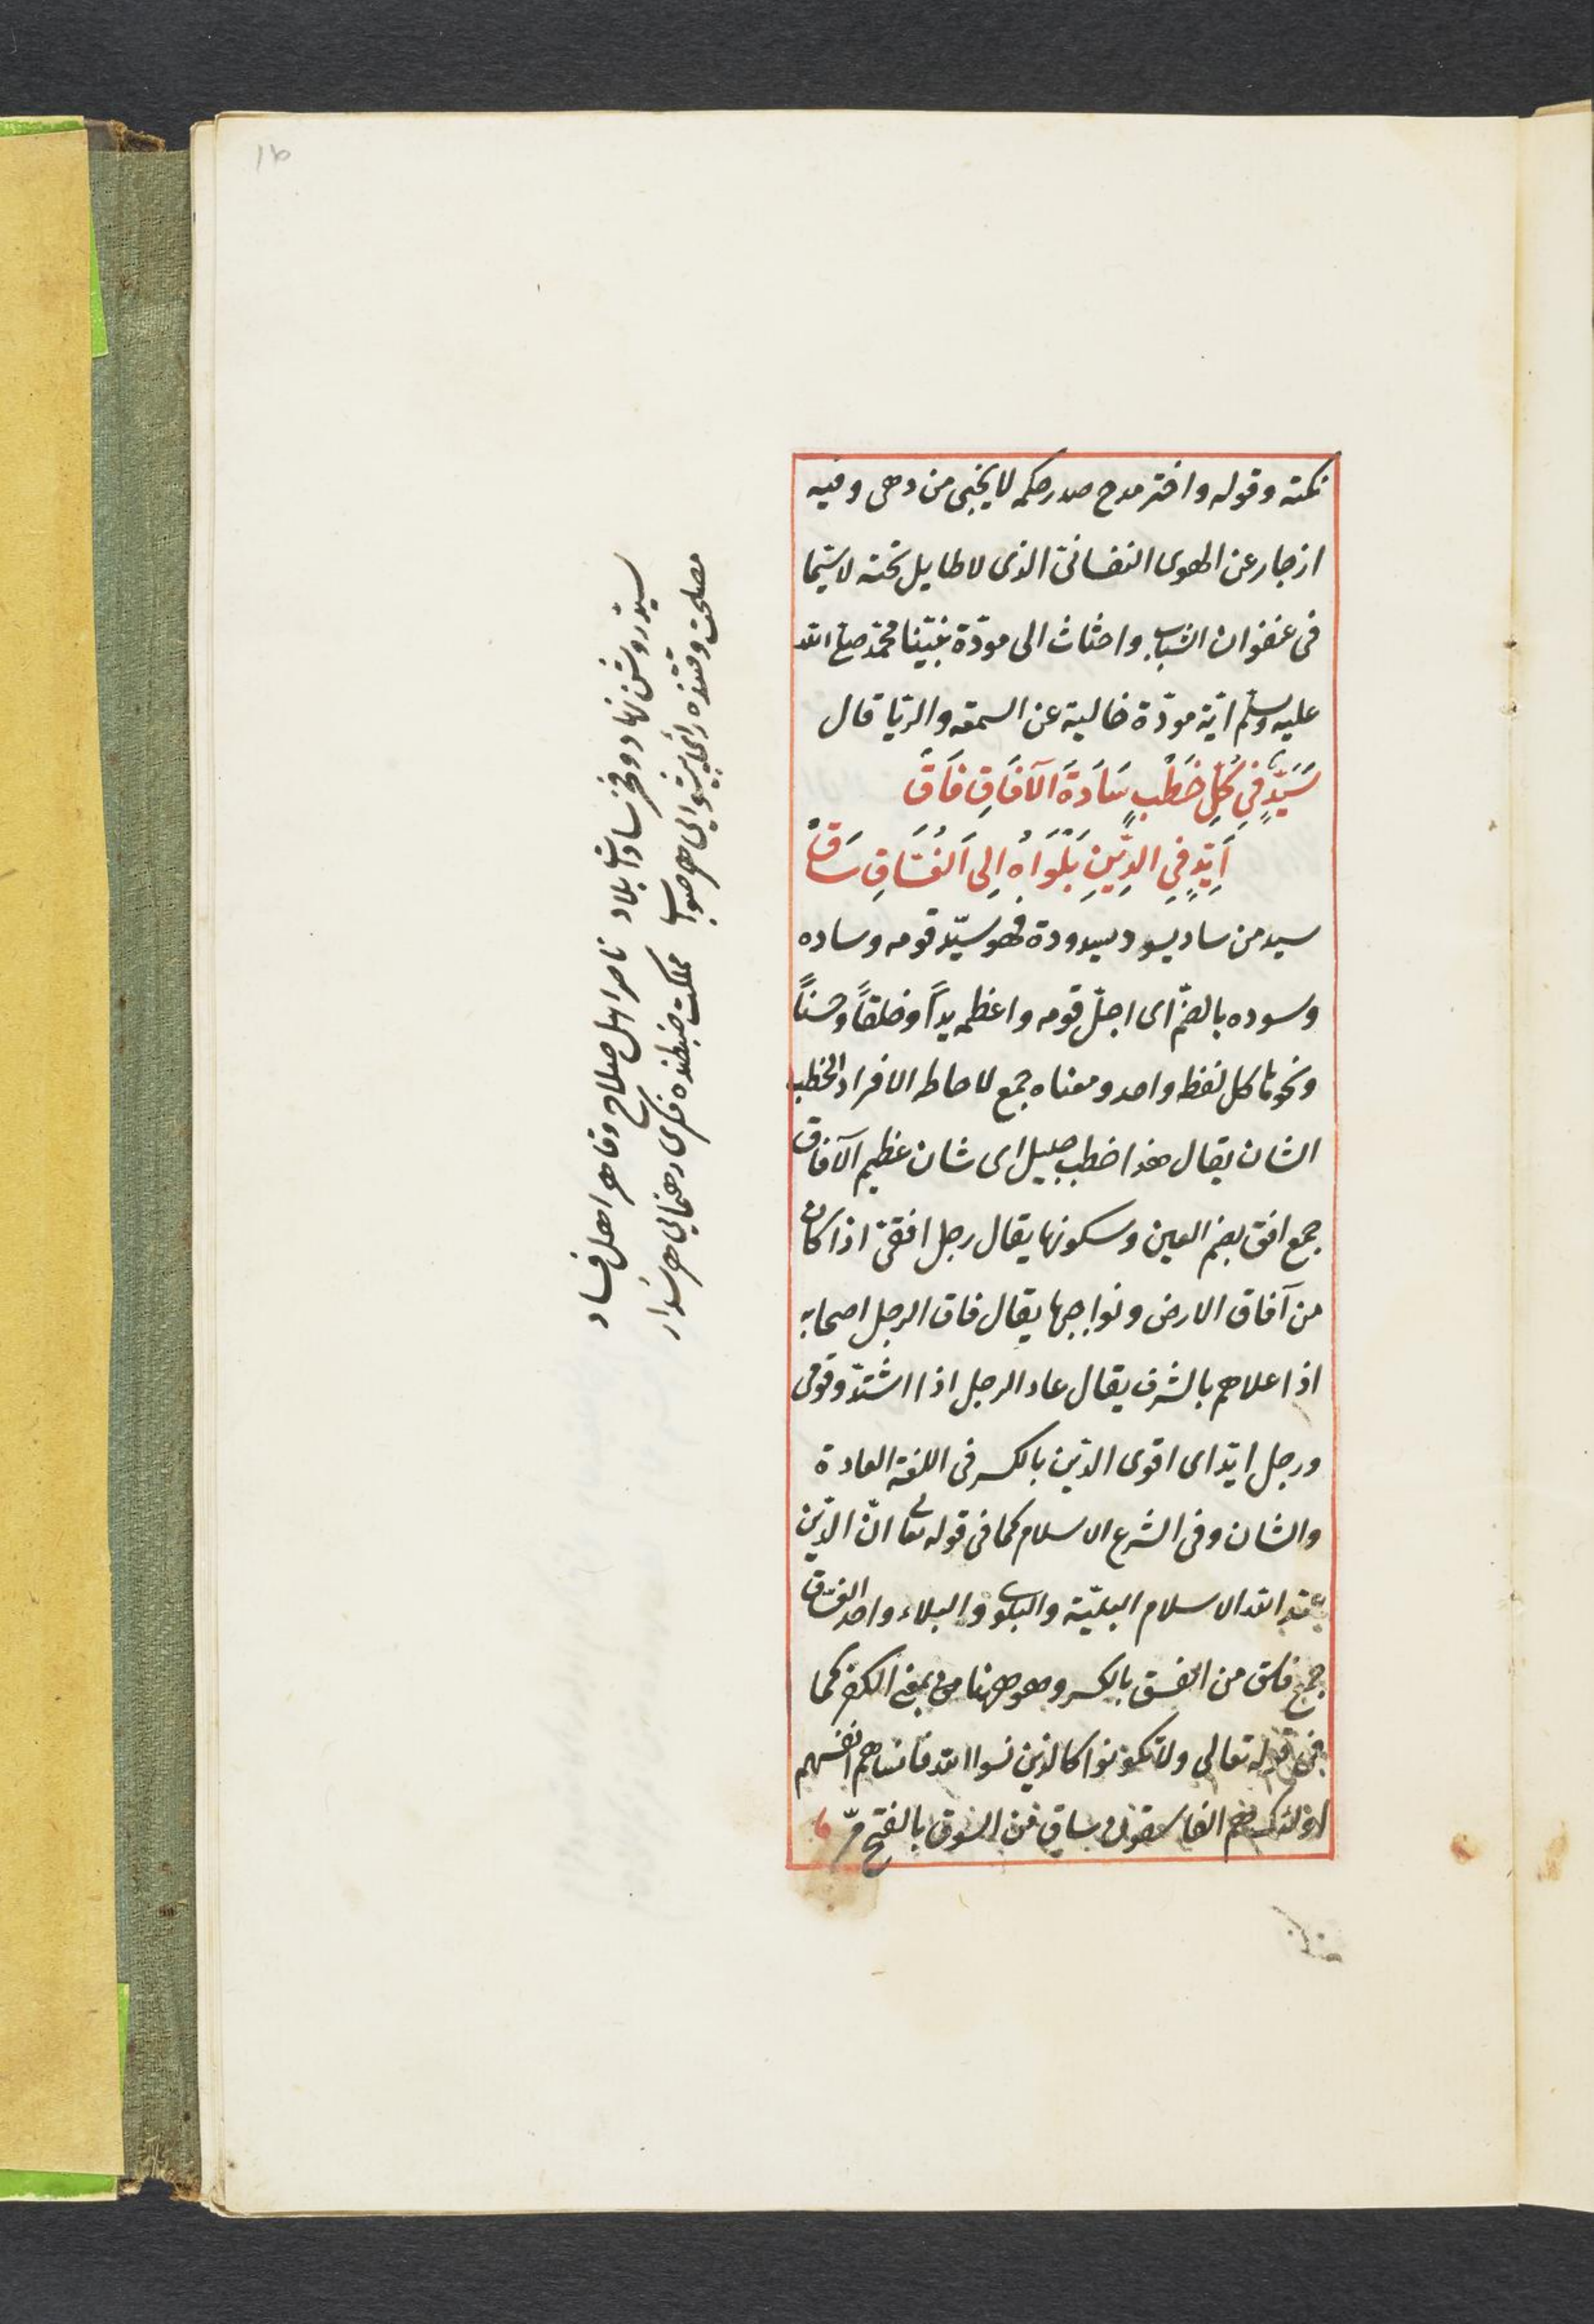 نكته وقوله وافتر مدح صدر حكم لا يخبى من دهى وفيه
ازجار عن الهوى النفسانى الذى لا طايل تحته لا سيّما
فى عنفوان الشباب واحثاث الى مودّة نبيّنا محمّد صلى الله
عليه وسلّم ايّة مودّة خالية عن السمعه والريا قال
سَيِّدٌ فِي كُلِّ خَطْبٍ سَادَةَ الآفَاقِ فَاقْ
اَيِّدٍ فِي الدِّينِ بَلْوَاهُ اِلَى الفُسَّاقِ سَاقْ
سيد من ساد يسود سيدودة فهو سيّد قومه وساده
وسوده بالضمّ اى اجلّ قومه واعظمه يداً وخلقاً وحسناً
ونحوها كل لفظه واحد ومعناه جمع لاحاطه الافراد الخطب
الشان يقال هذا خطب جليل اى شان عظيم الآفاق
جمع افق بضم العين وسكونها يقال رجل افقىّ اذا كان
من آفاق الارض ونواجيها يقال فاق الرجل اصحابه
اذا علاهم بالشرف يقال عاد الرجل اذا اشتدّ وقوى
ورجل ايّد اى اقوى الدّين بالكسر فى اللغة العادة
والشان وفى الشرع الاسلام كما فى قوله تعالى انّ الدّين
عند الله الاسلام البليّة والبلوى والبلاء واحد الفسّاق
جمع فاسق من الفسق بالكسر وهو ههنا بمعنى الكفر كما
فى قوله تعالى ولا تكونوا كالذين نسوا الله فانساهم انفسهم
اولئك هم الفاسقون وساق من السوق بالفتح مرّ
سيد روشن نهاد وفخر سادات بلاد ناصر اهل صلاح وقاهر اهل فساد
مصلحت وقتنده رأى پيشوايى هر صواب مملكت ضبطنده فكرى رهنمايى هر سداد